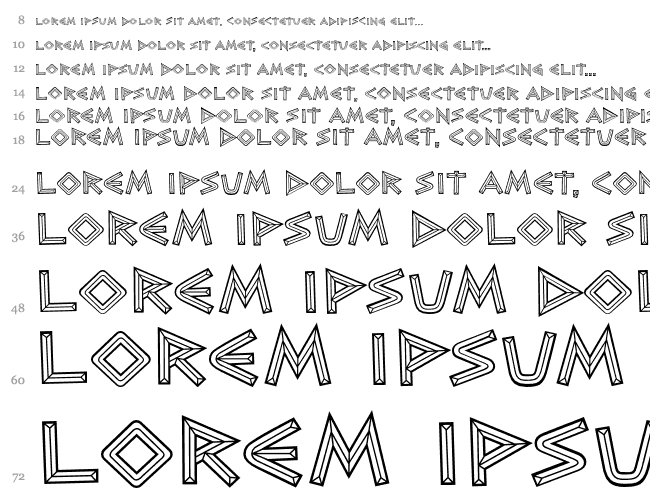 8 LOREM IPSUM DOLOR SIT AMET, CONSECTETUER ADIPISCING ELIT...
10 LOREM IPSUM DOLOR SIT AMET, CONSECTETUER ADIPISCING ELIT...
12 LOREM IPSUM DOLOR SIT AMET, CONSECTETUER ADIPISCING ELIT...
14 LOREM IPSUM DOLOR SIT AMET, CONSECTETUER ADIPISCING E
16 LOREM IPSUM DOLOR SIT AMET, CONSECTETUER ADIPIS
18 LOREM IPSUM DOLOR SIT AMET, CONSECTETUER
24 LOREM IPSUM DOLOR SIT AMET, CON
36 LOREM IPSUM DOLOR SI
48 LOREM IPSUM DOL
60 LOREM IPSUM
72 LOREM IPSU